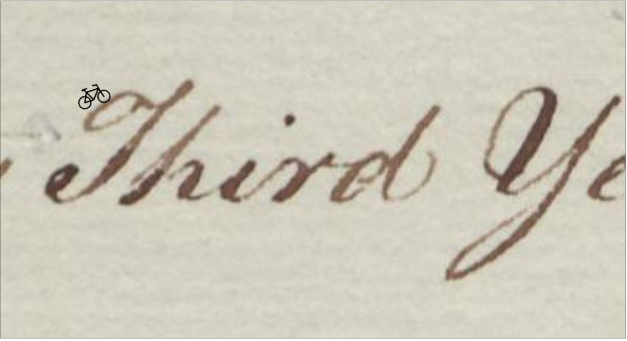 Third Ye